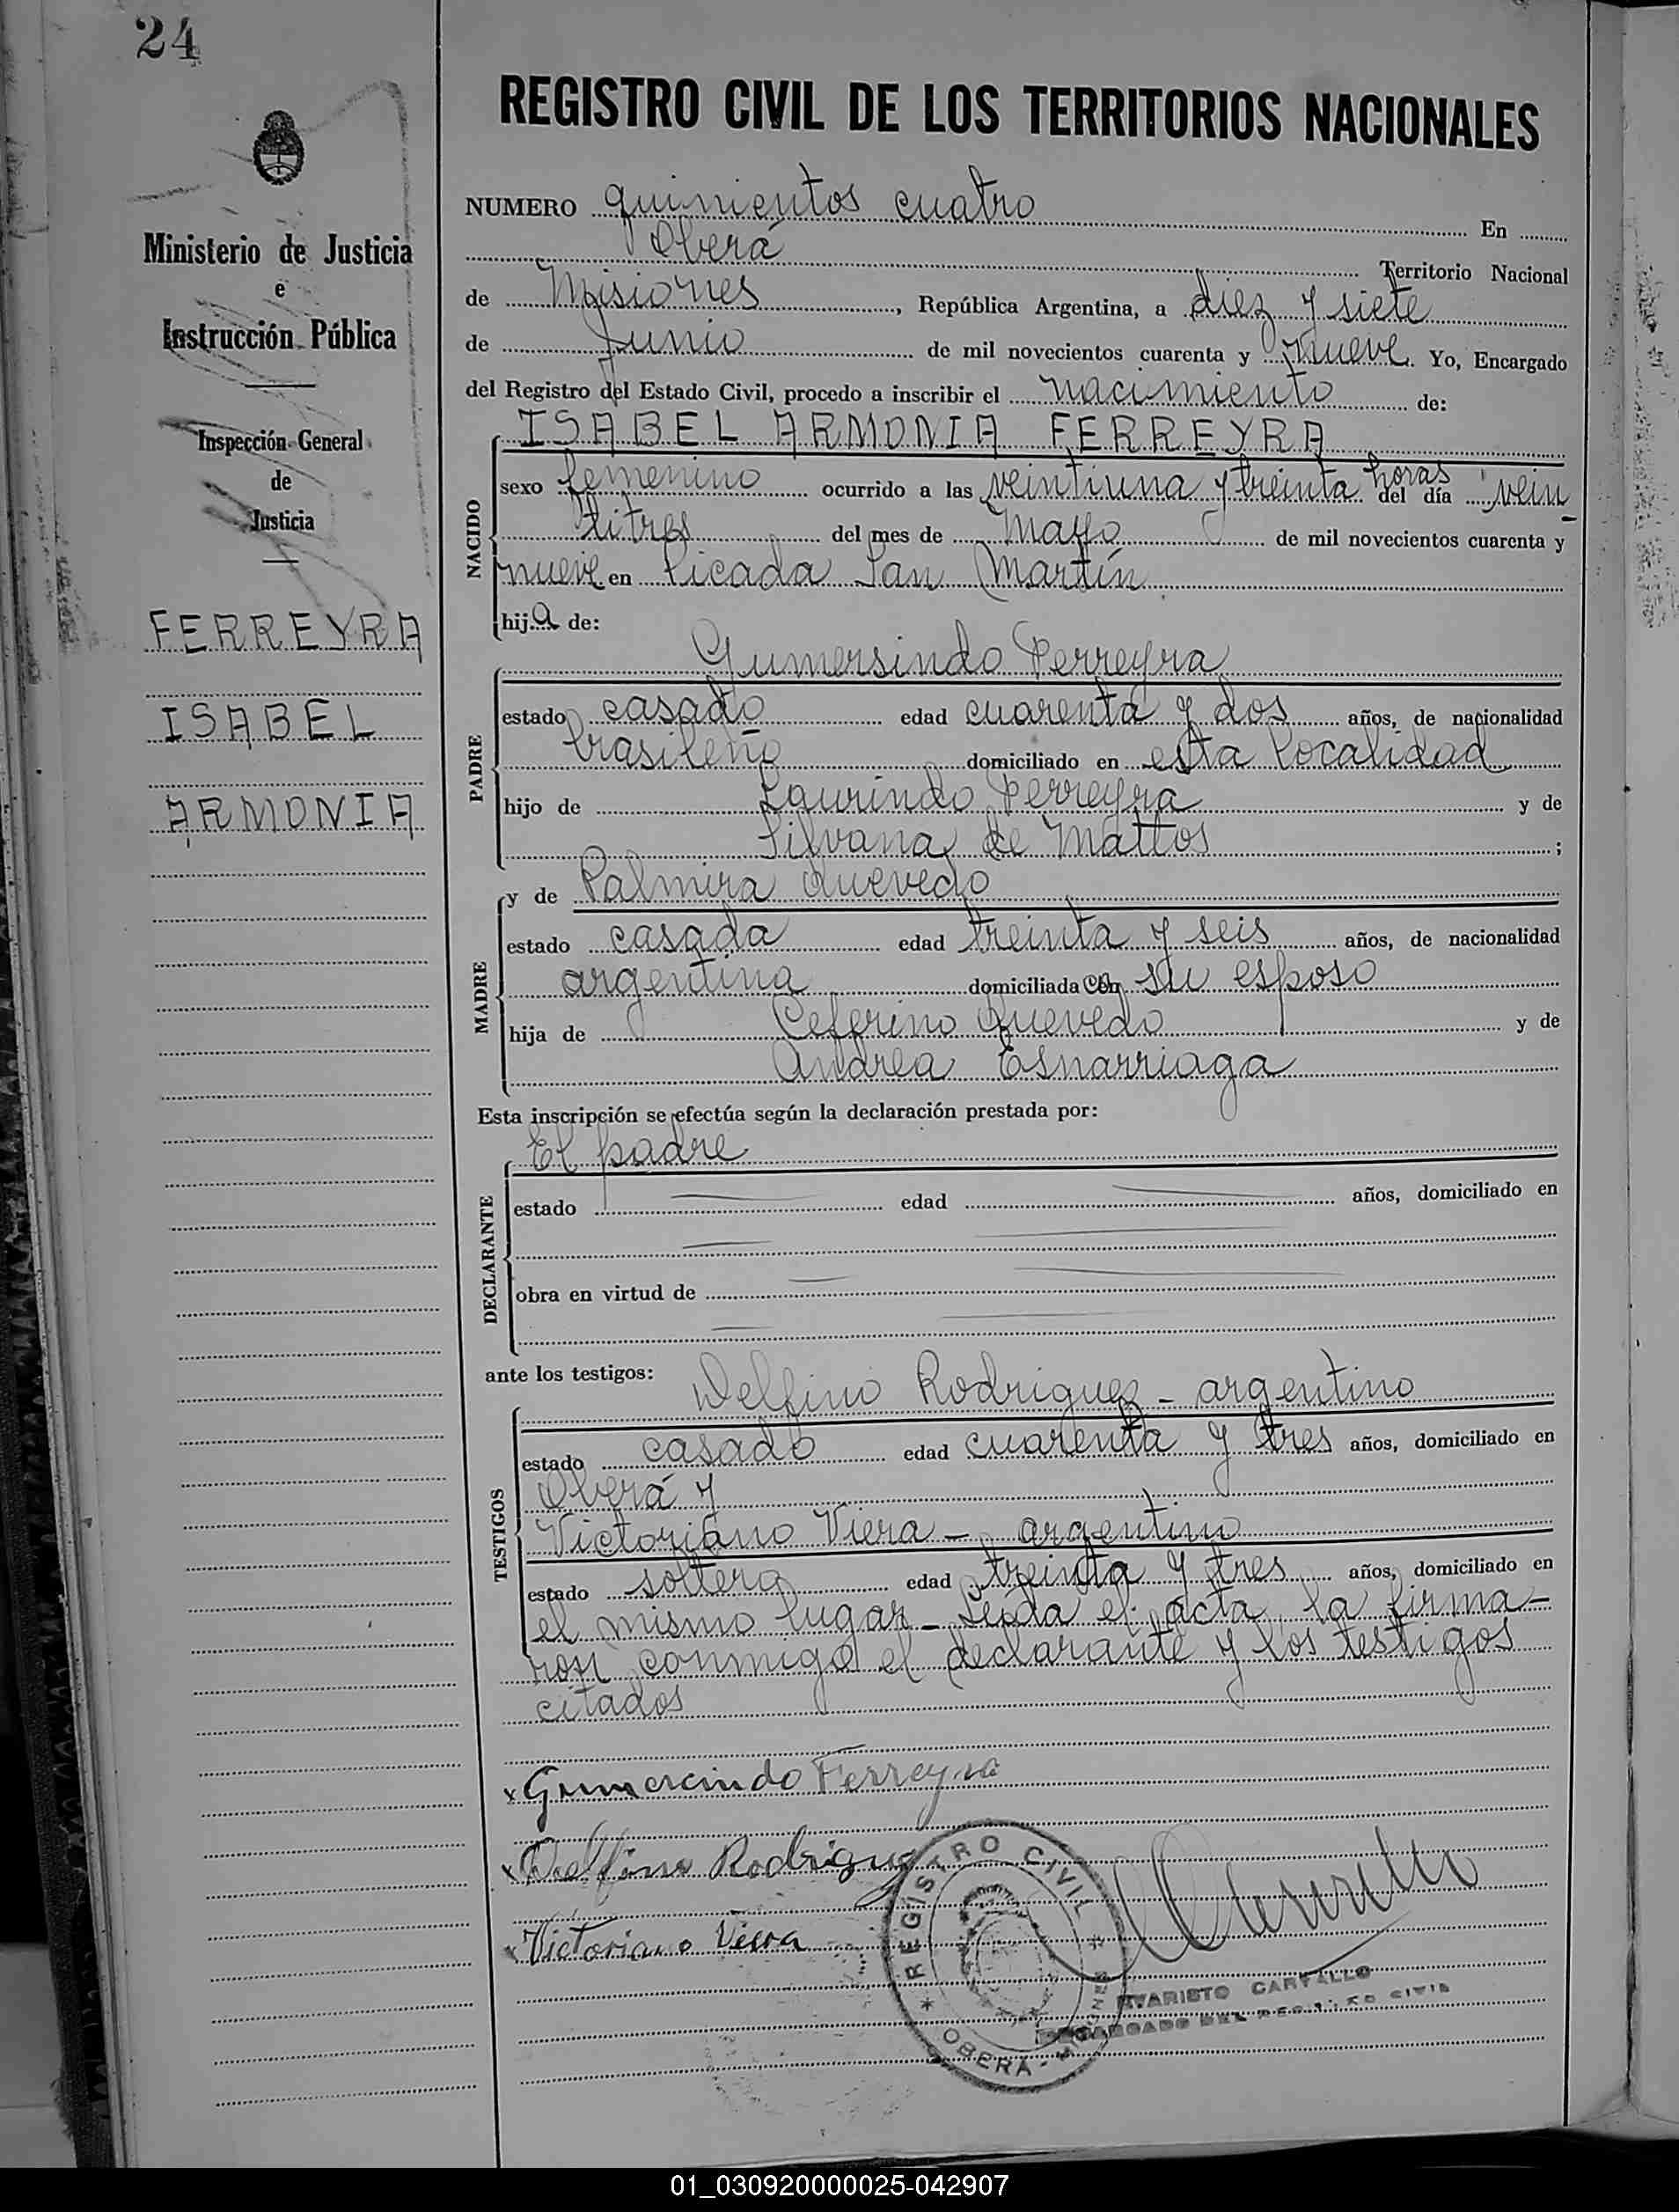 24
REGISTRO CIVIL DE LOS TERRITORIOS NACIONALES
Ministerio de Justicia
e
Instrucción Pública
Inspección General
de
Justicia
FERREYRA
ISABEL
ARMONIA
NUMERO quinientos cuatro En
Oberá Territorio Nacional
de Misiones, República Argentina, a diez y siete
de Junio de mil novecientos cuarenta y nueve. Yo, Encargado
del Registro del Estado Civil, procedo a inscribir el nacimiento de:
NACIDO
ISABEL ARMONIA FERREYRA
sexo femenino ocurrido a las veintiuna y treinta horas del día vein
titres del mes de Mayo de mil novecientos cuarenta y
nueve en Picada San Martín
hija de:
PADRE
Gumersindo Ferreyra
estado casado edad cuarenta y dos años, de nacionalidad
brasileño domiciliado en esta localidad
hijo de Laurindo Ferreyra y de
Silvana de Mattos ;
MADRE
y de Palmira Quevedo
estado casada edad treinta y seis años, de nacionalidad
argentina domiciliada con su esposo
hija de Ceferino Quevedo y de
Andrea Esnarriaga
Esta inscripción se efectúa según la declaración prestada por:
DECLARANTE
El padre
estado edad años, domiciliado en
obra en virtud de
ante los testigos:
TESTIGOS
Delfino Rodriguez - argentino
estado casado edad cuarenta y tres años, domiciliado en
Oberá y
Victoriano Viera - argentino
estado soltero edad treinta y tres años, domiciliado en
el mismo lugar - Leída el acta, la firma-
ron conmigo el declarante y los testigos
citados
x Gumercindo Ferreyra
x Delfino Rodriguez
x Victoriano Viera
REGISTRO CIVIL
* OBERÁ - MISIONES *
EVARISTO CARVALLO
ENCARGADO DEL REGISTRO CIVIL
01_030920000025-042907